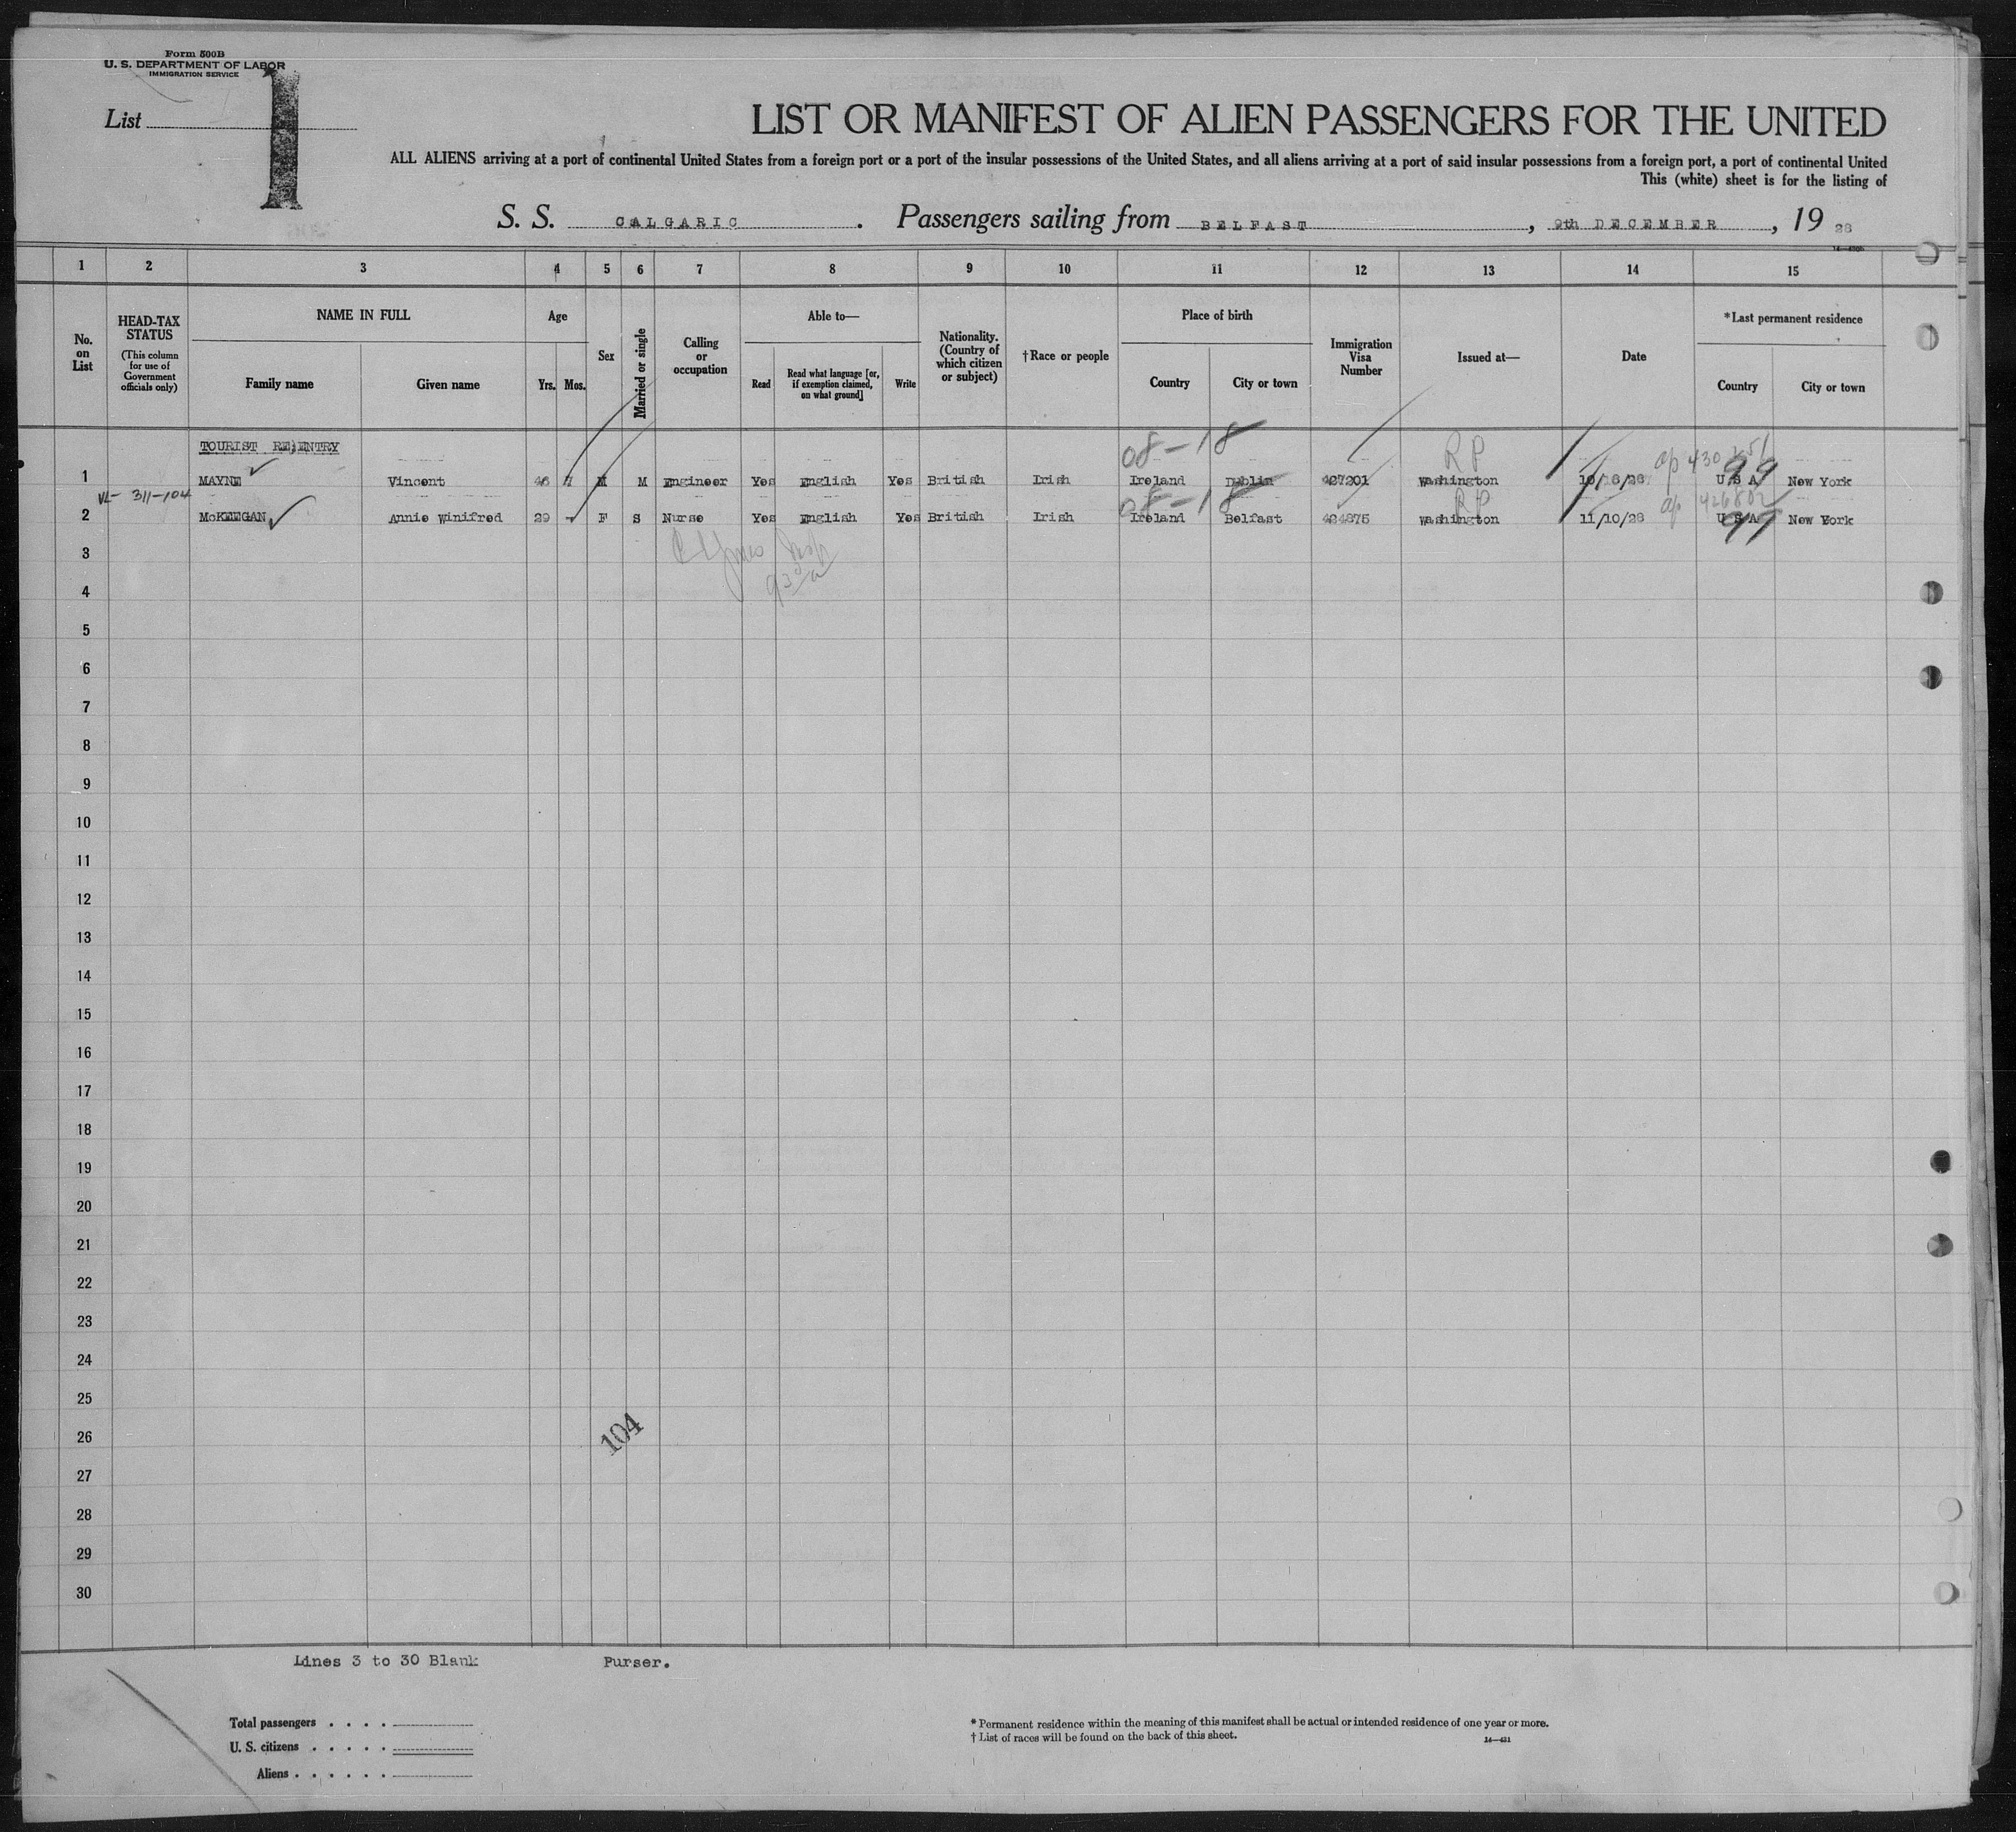 Form 500B
U. S. DEPARTMENT OF LABOR
IMMIGRATION SERVICE
1
List
LIST OR MANIFEST OF ALIEN PASSENGERS FOR THE UNITED
ALL ALIENS arriving at a port of continental United States from a foreign port or a port of the insular possessions of the United States, and all aliens arriving at a port of said insular possessions from a foreign port, a port of continental United
This (white) sheet is for the listing of
S. S. CALGARIC. Passengers sailing from BELFAST, 9th DECEMBER, 19 28
1 2 3 4 5 6 7 8 9 10 11 12 13 14 15
No. on List
HEAD-TAX STATUS (This column for use of Government officials only)
NAME IN FULL
Family name Given name
Age
Yrs. Mos.
Sex
Married or single
Calling or occupation
Able to—
Read Read what language [or, if exemption claimed, on what ground] Write
Nationality. (Country of which citizen or subject)
†Race or people
Place of birth
Country City or town
Immigration Visa Number
Issued at—
Date
*Last permanent residence
Country City or town
TOURIST RE;ENTRY
08-18 RP
1 MAYNE Vincent 46 7 M M Engineer Yes English Yes British Irish Ireland Dublin 427201 Washington 10/16/28 U S A 99 New York
VL- 311-104
08-18 RP
2 McKEEGAN Annie Winifred 29 - F S Nurse Yes English Yes British Irish Ireland Belfast 424875 Washington 11/10/28 U S A 99 New York
3
4
5
6
7
8
9
10
11
12
13
14
15
16
17
18
19
20
21
22
23
24
25
26
104
27
28
29
30
Lines 3 to 30 Blank Purser.
Total passengers . . . .
U. S. citizens . . . . .
Aliens . . . . . .
* Permanent residence within the meaning of this manifest shall be actual or intended residence of one year or more.
† List of races will be found on the back of this sheet.
14—421